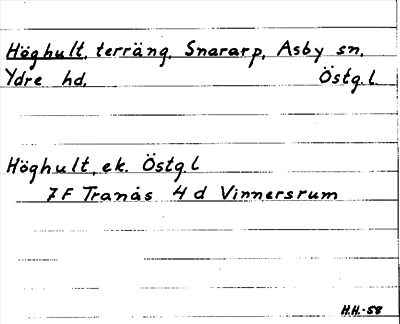 Höghult, terräng, Snararp, Asby sn,
Ydre hd, Östg.l.
Höghult, ek. Östg.l
7F Tranås 4 d Vinnersrum
H.H.-58